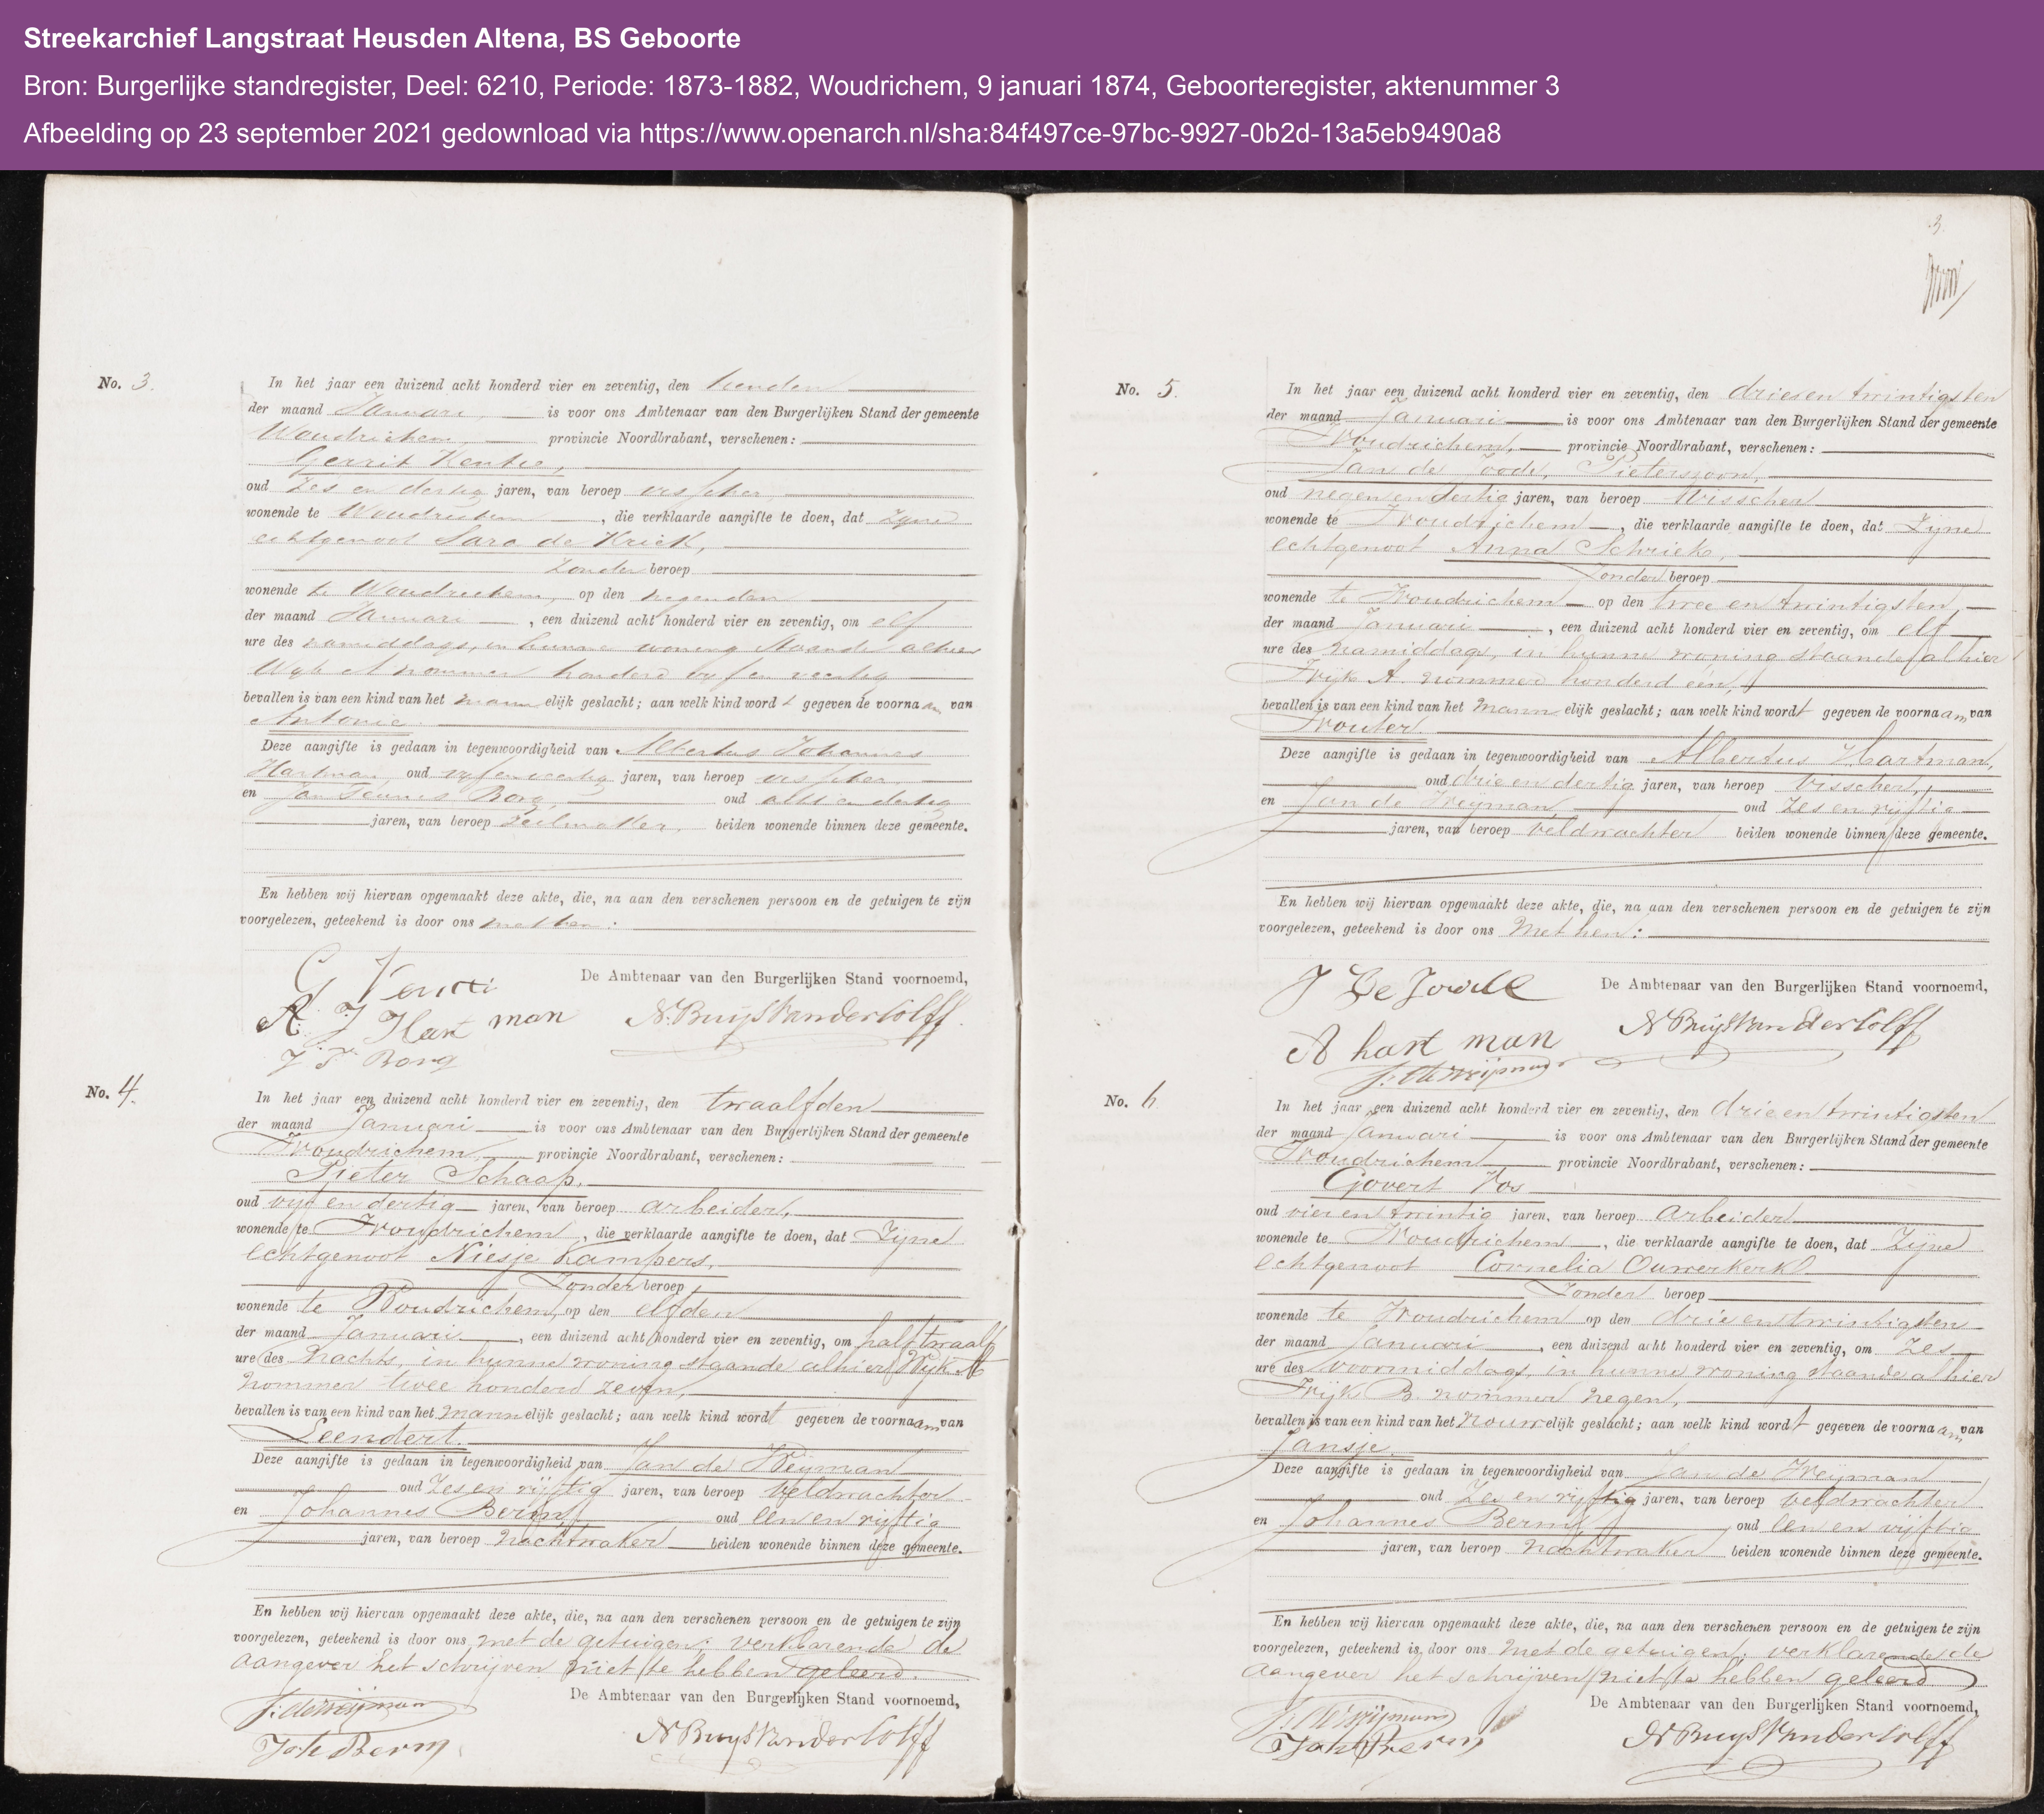 Streekarchief Langstraat Heusden Altena, BS Geboorte
Bron: Burgerlijke standregister, Deel: 6210, Periode: 1873-1882, Woudrichem, 9 januari 1874, Geboorteregister, aktenummer 3
Afbeelding op 23 september 2021 gedownload via https://www.openarch.nl/sha:84f497ce-97bc-9927-0b2d-13a5eb9490a8
No. 3.
In het jaar een duizend acht honderd vier en zeventig, den tienden
der maand Januari, is voor ons Ambtenaar van den Burgerlijken Stand der gemeente
Woudrichem, provincie Noordbrabant, verschenen:
Gerrit
oud zes en dertig jaren, van beroep visscher,
wonende te Woudrichem, die verklaarde aangifte te doen, dat zijne
echtgenoot Sara de Kriek,
zonder beroep
wonende te Woudrichem, op den negenden
der maand Januari, een duizend acht honderd vier en zeventig, om elf
ure des namiddags, in hunne woning staande alhier
Wijk A nommer honderd vijf en veertig
bevallen is van een kind van het mannelijk geslacht; aan welk kind wordt gegeven de voornaam van
Antonie.
Deze aangifte is gedaan in tegenwoordigheid van Albertus Johannes
Hartman, oud vijf en veertig jaren, van beroep visscher,
en Jan Teunis Borg, oud acht en dertig
jaren, van beroep zeilmaker, beiden wonende binnen deze gemeente.
En hebben wij hiervan opgemaakt deze akte, die, na aan den verschenen persoon en de getuigen te zijn
voorgelezen, geteekend is door ons met hen:
De Ambtenaar van den Burgerlijken Stand voornoemd,
A. J. Hartman
N. Buijs van der Colff
J T Borg
No. 4.
In het jaar een duizend acht honderd vier en zeventig, den twaalfden
der maand Januari is voor ons Ambtenaar van den Burgerlijken Stand der gemeente
Woudrichem, provincie Noordbrabant, verschenen:
Pieter Schaap,
oud vijf en dertig jaren, van beroep arbeider,
wonende te Woudrichem, die verklaarde aangifte te doen, dat Zijne
echtgenoot Niesje Kampers,
Zonder beroep
wonende te Woudrichem, op den elfden
der maand Januari, een duizend acht honderd vier en zeventig, om half twaalf
ure des nachts, in hunne woning staande alhier Wijk A
nommer twee honderd zeven,
bevallen is van een kind van het mannelijk geslacht; aan welk kind wordt gegeven de voornaam van
Leendert.
Deze aangifte is gedaan in tegenwoordigheid van Jan de Weijman
oud Zes en vijftig jaren, van beroep veldwachter
en Johannes Berm, oud een en vijftig
jaren, van beroep nachtwaker beiden wonende binnen deze gemeente.
En hebben wij hiervan opgemaakt deze akte, die, na aan den verschenen persoon en de getuigen te zijn
voorgelezen, geteekend is door ons met de getuigen; verklarende de
aangever het schrijven niet te hebben geleerd.
De Ambtenaar van den Burgerlijken Stand voornoemd,
J. de Weijman
Joh Berm
N Buijs van der Colff
3.
No. 5.
In het jaar een duizend acht honderd vier en zeventig, den drie en twintigsten
der maand Januari is voor ons Ambtenaar van den Burgerlijken Stand der gemeente
Woudrichem, provincie Noordbrabant, verschenen:
Jan de Joode, Pieterszoon,
oud negen en dertig jaren, van beroep Visscher
wonende te Woudrichem, die verklaarde aangifte te doen, dat Zijne
echtgenoot Anna Schriek,
Zonder beroep
wonende te Woudrichem op den twee en twintigsten,
der maand Januari, een duizend acht honderd vier en zeventig, om elf
ure des namiddags, in hunne woning staande alhier
Wijk A. nommer honderd één,
bevallen is van een kind van het mannelijk geslacht; aan welk kind wordt gegeven de voornaam van
Wouter.
Deze aangifte is gedaan in tegenwoordigheid van Albertus Hartman,
oud drie en dertig jaren, van beroep visscher,
en Jan de Weijman, oud Zes en vijftig
jaren, van beroep veldwachter beiden wonende binnen deze gemeente.
En hebben wij hiervan opgemaakt deze akte, die, na aan den verschenen persoon en de getuigen te zijn
voorgelezen, geteekend is door ons Met hen:
J De Joode
De Ambtenaar van den Burgerlijken Stand voornoemd,
A hartman
N Buijs van der Colff
J. de Weijman
No. 6
In het jaar een duizend acht honderd vier en zeventig, den drie en twintigsten
der maand Januari is voor ons Ambtenaar van den Burgerlijken Stand der gemeente
Woudrichem provincie Noordbrabant, verschenen:
Govert Vos
oud vier en twintig jaren, van beroep Arbeider
wonende te Woudrichem, die verklaarde aangifte te doen, dat Zijne
echtgenoot Cornelia Ouwerkerk
Zonder beroep
wonende te Woudrichem op den drie en twintigsten
der maand Januari, een duizend acht honderd vier en zeventig, om Zes
ure des voormiddags, in hunne woning staande alhier
Wijk B. nommer negen,
bevallen is van een kind van het vrouwelijk geslacht; aan welk kind wordt gegeven de voornaam van
Jansje.
Deze aangifte is gedaan in tegenwoordigheid van Jan de Weijman
oud Zes en vijftig jaren, van beroep veldwachter
en Johannes Berm, oud een en vijftig
jaren, van beroep nachtwaker beiden wonende binnen deze gemeente.
En hebben wij hiervan opgemaakt deze akte, die, na aan den verschenen persoon en de getuigen te zijn
voorgelezen, geteekend is door ons Met de getuigen; verklarende de
aangever het schrijven niet te hebben geleerd
De Ambtenaar van den Burgerlijken Stand voornoemd,
J. de Weijman
Joh Berm
N Buijs van der Colff